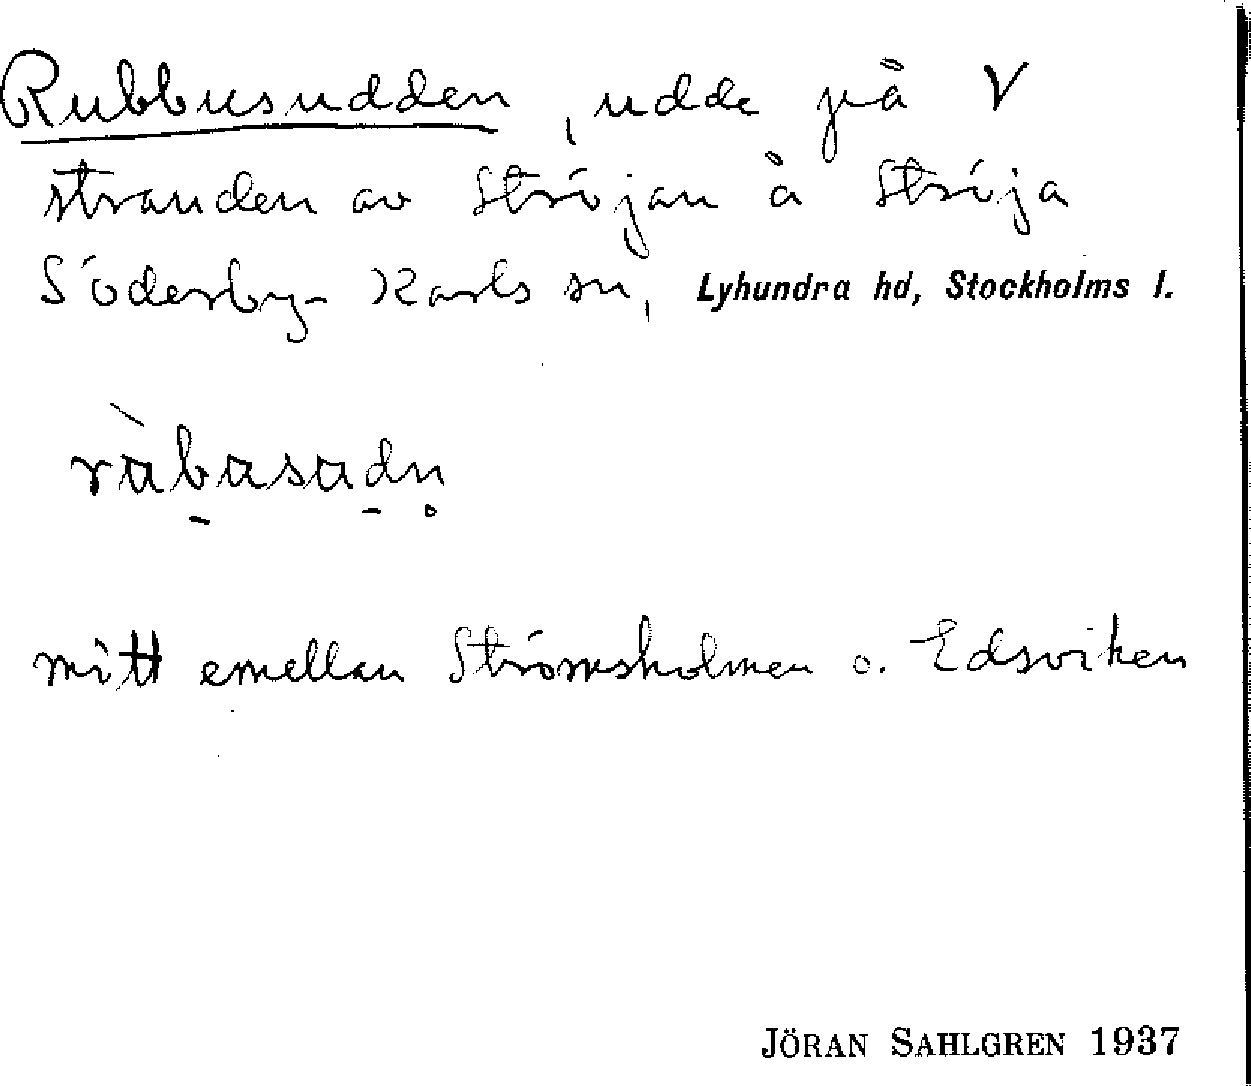 Rubbusudden, udde på V
stranden av Ströjan å Ströja
Söderby-Karls sn, Lyhundra hd, Stockholms l.
mitt emellan Strömsholmen o. Edsviken
JÖRAN SAHLGREN 1937